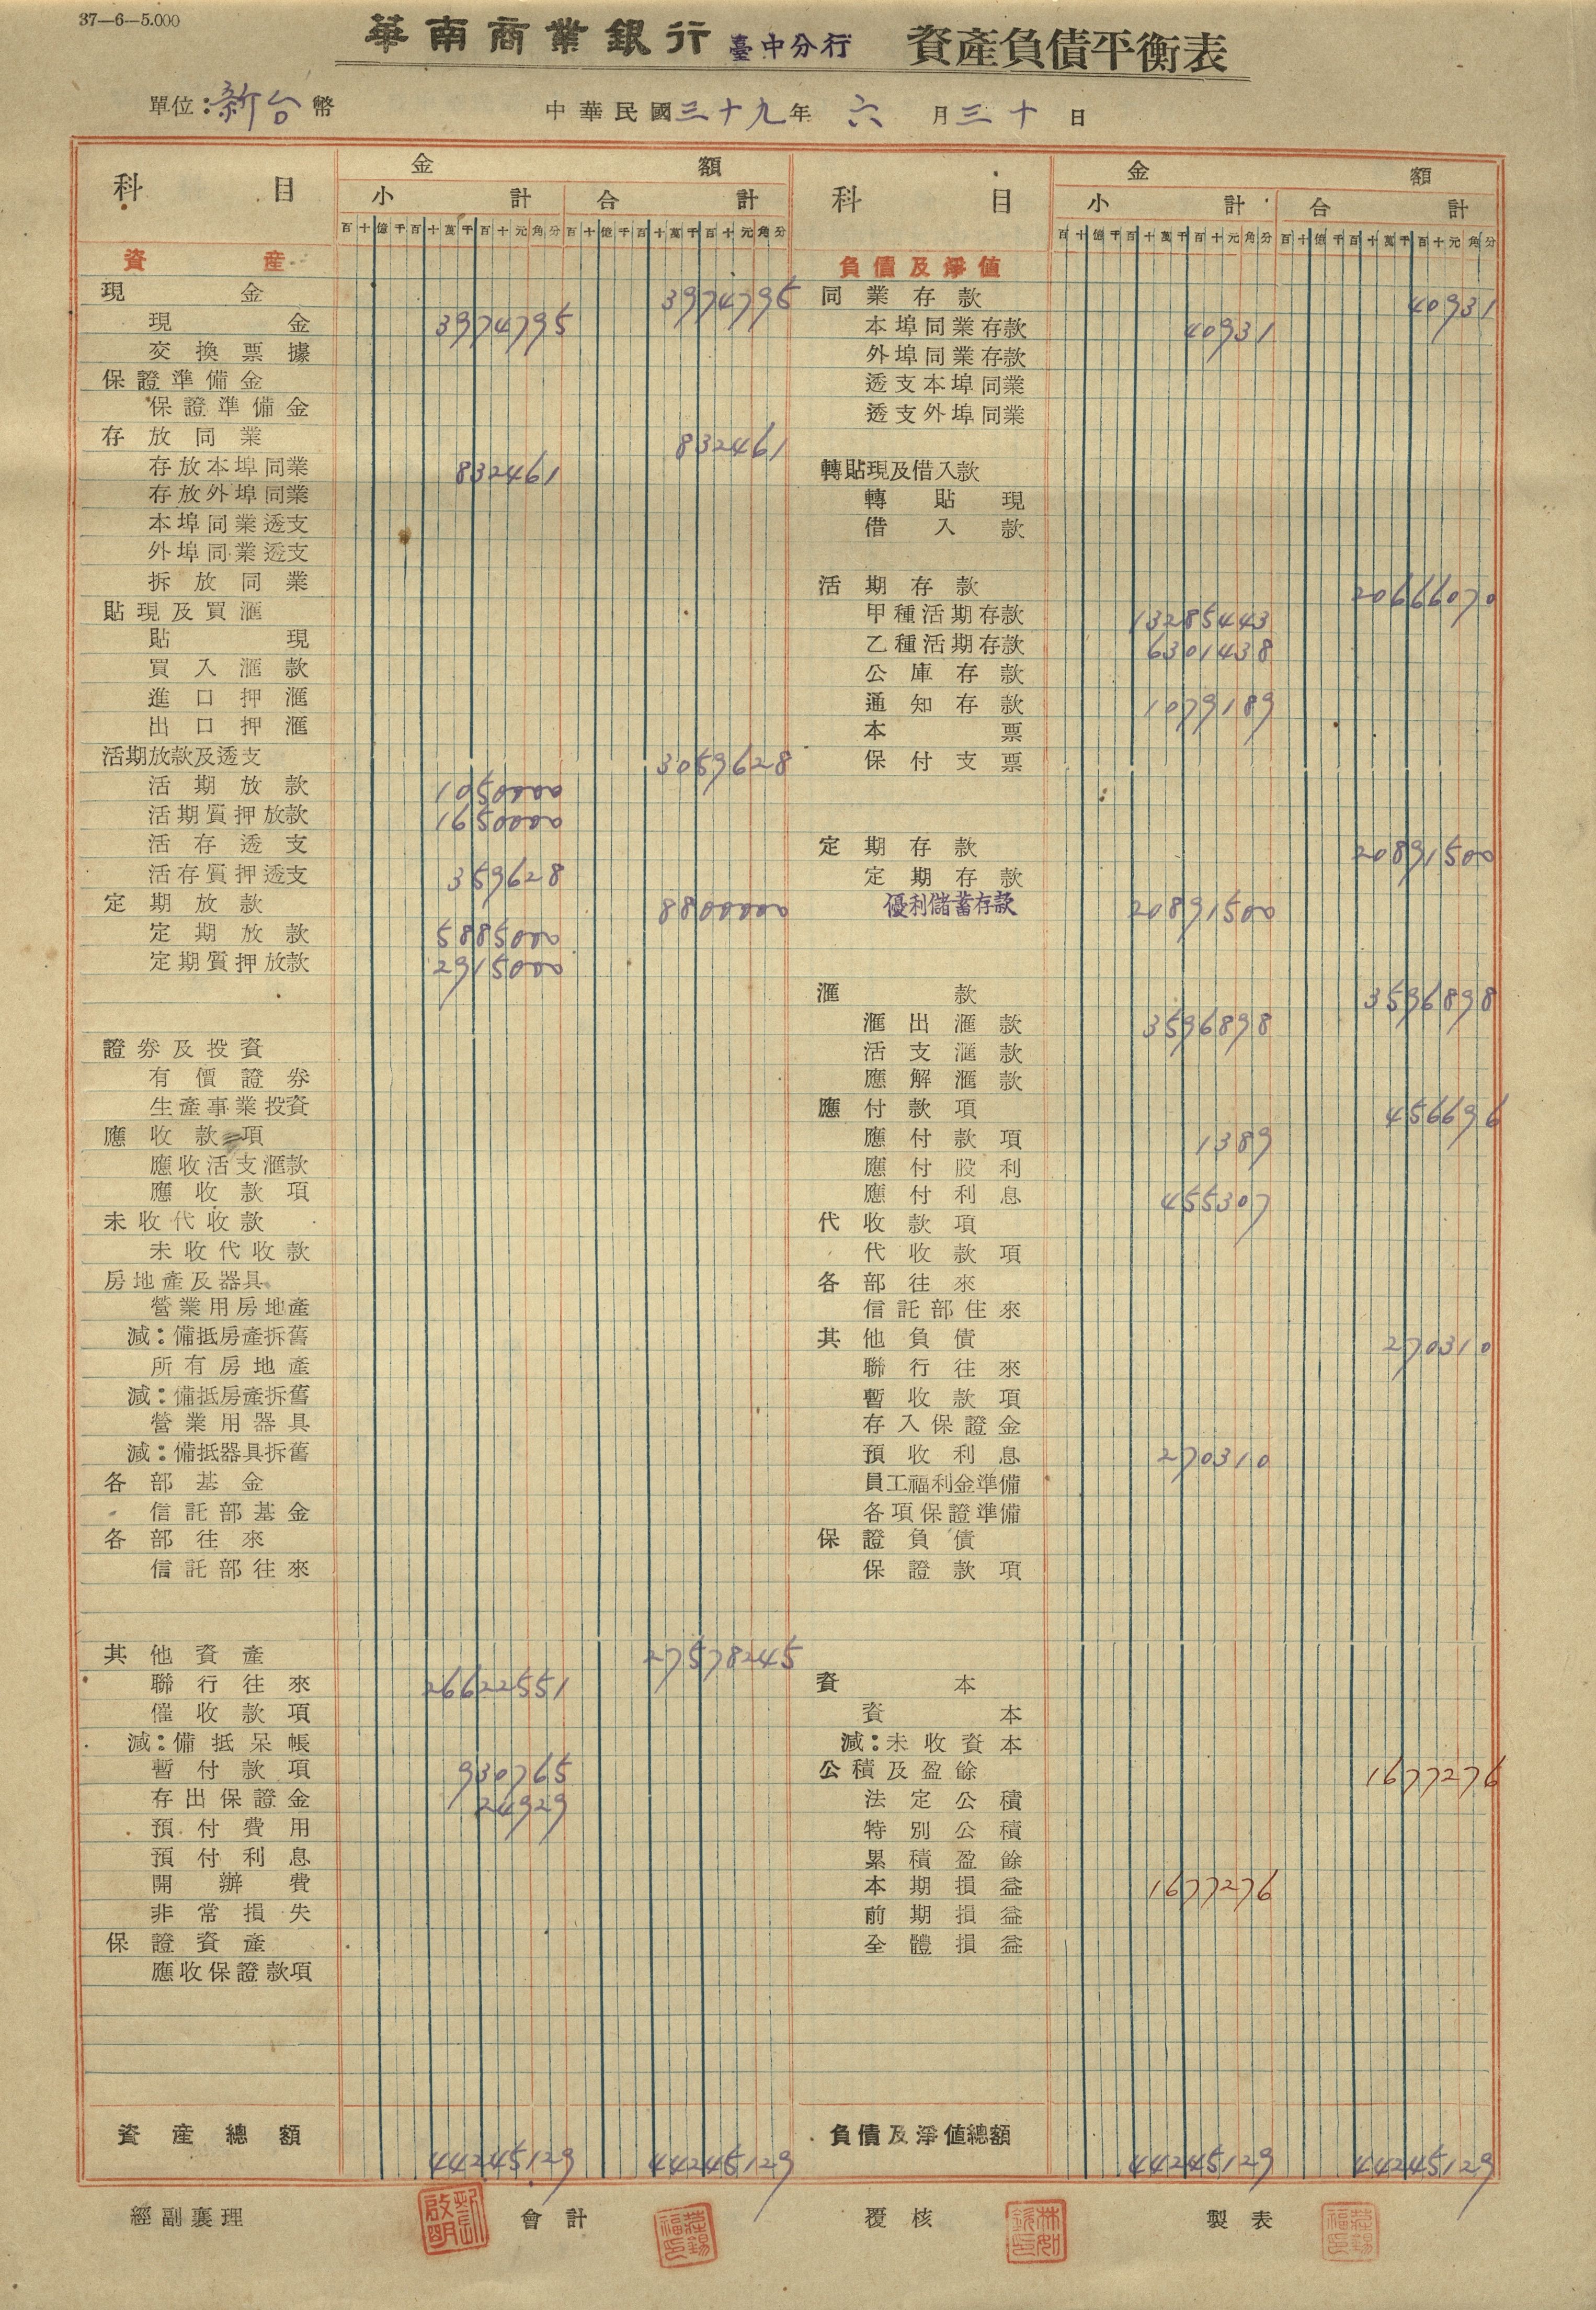 37—6—5.000
華南商業銀行 臺中分行 資產負債平衡表
單位:新台幣 中華民國三十九年六月三十日
科目 金額
小計 合計
百十億千百十萬千百十元角分 百十億千百十萬千百十元角分
資產
現金 3974795
現金 3974795
交換票據
保證準備金
保證準備金
存放同業 832461
存放本埠同業 832461
存放外埠同業
本埠同業透支
外埠同業透支
拆放同業
貼現及買滙
貼現
買入滙款
進口押滙
出口押滙
活期放款及透支 3059628
活期放款 1050000
活期質押放款 1650000
活存透支
活存質押透支 359628
定期放款 8800000
定期放款 5885000
定期質押放款 2915000
證券及投資
有價證券
生產事業投資
應收款項
應收活支滙款
應收款項
未收代收款
未收代收款
房地產及器具
營業用房地產
減:備抵房產拆舊
所有房地產
減:備抵房產拆舊
營業用器具
減:備抵器具拆舊
各部基金
信託部基金
各部往來
信託部往來
其他資產 27578245
聯行往來 26622551
催收款項
減:備抵呆帳
暫付款項 930765
存出保證金 24929
預付費用
預付利息
開辦費
非常損失
保證資產
應收保證款項
資產總額 44245129 44245129
科目 金額
小計 合計
百十億千百十萬千百十元角分 百十億千百十萬千百十元角分
負債及淨值
同業存款 40931
本埠同業存款 40931
外埠同業存款
透支本埠同業
透支外埠同業
轉貼現及借入款
轉貼現
借入款
活期存款 20666070
甲種活期存款 13285443
乙種活期存款 6301438
公庫存款
通知存款 1079189
本票
保付支票
定期存款 20891500
定期存款
優利儲蓄存款 20891500
滙款 3596898
滙出滙款 3596898
活支滙款
應解滙款
應付款項 456696
應付款項 1389
應付股利
應付利息 455307
代收款項
代收款項
各部往來
信託部往來
其他負債 270310
聯行往來
暫收款項
存入保證金
預收利息 270310
員工福利金準備
各項保證準備
保證負債
保證款項
資本
資本
減:未收資本
公積及盈餘 1677276
法定公積
特別公積
累積盈餘
本期損益 1677276
前期損益
全體損益
負債及淨值總額 44245129 44245129
經副襄理 會計 覆核 製表